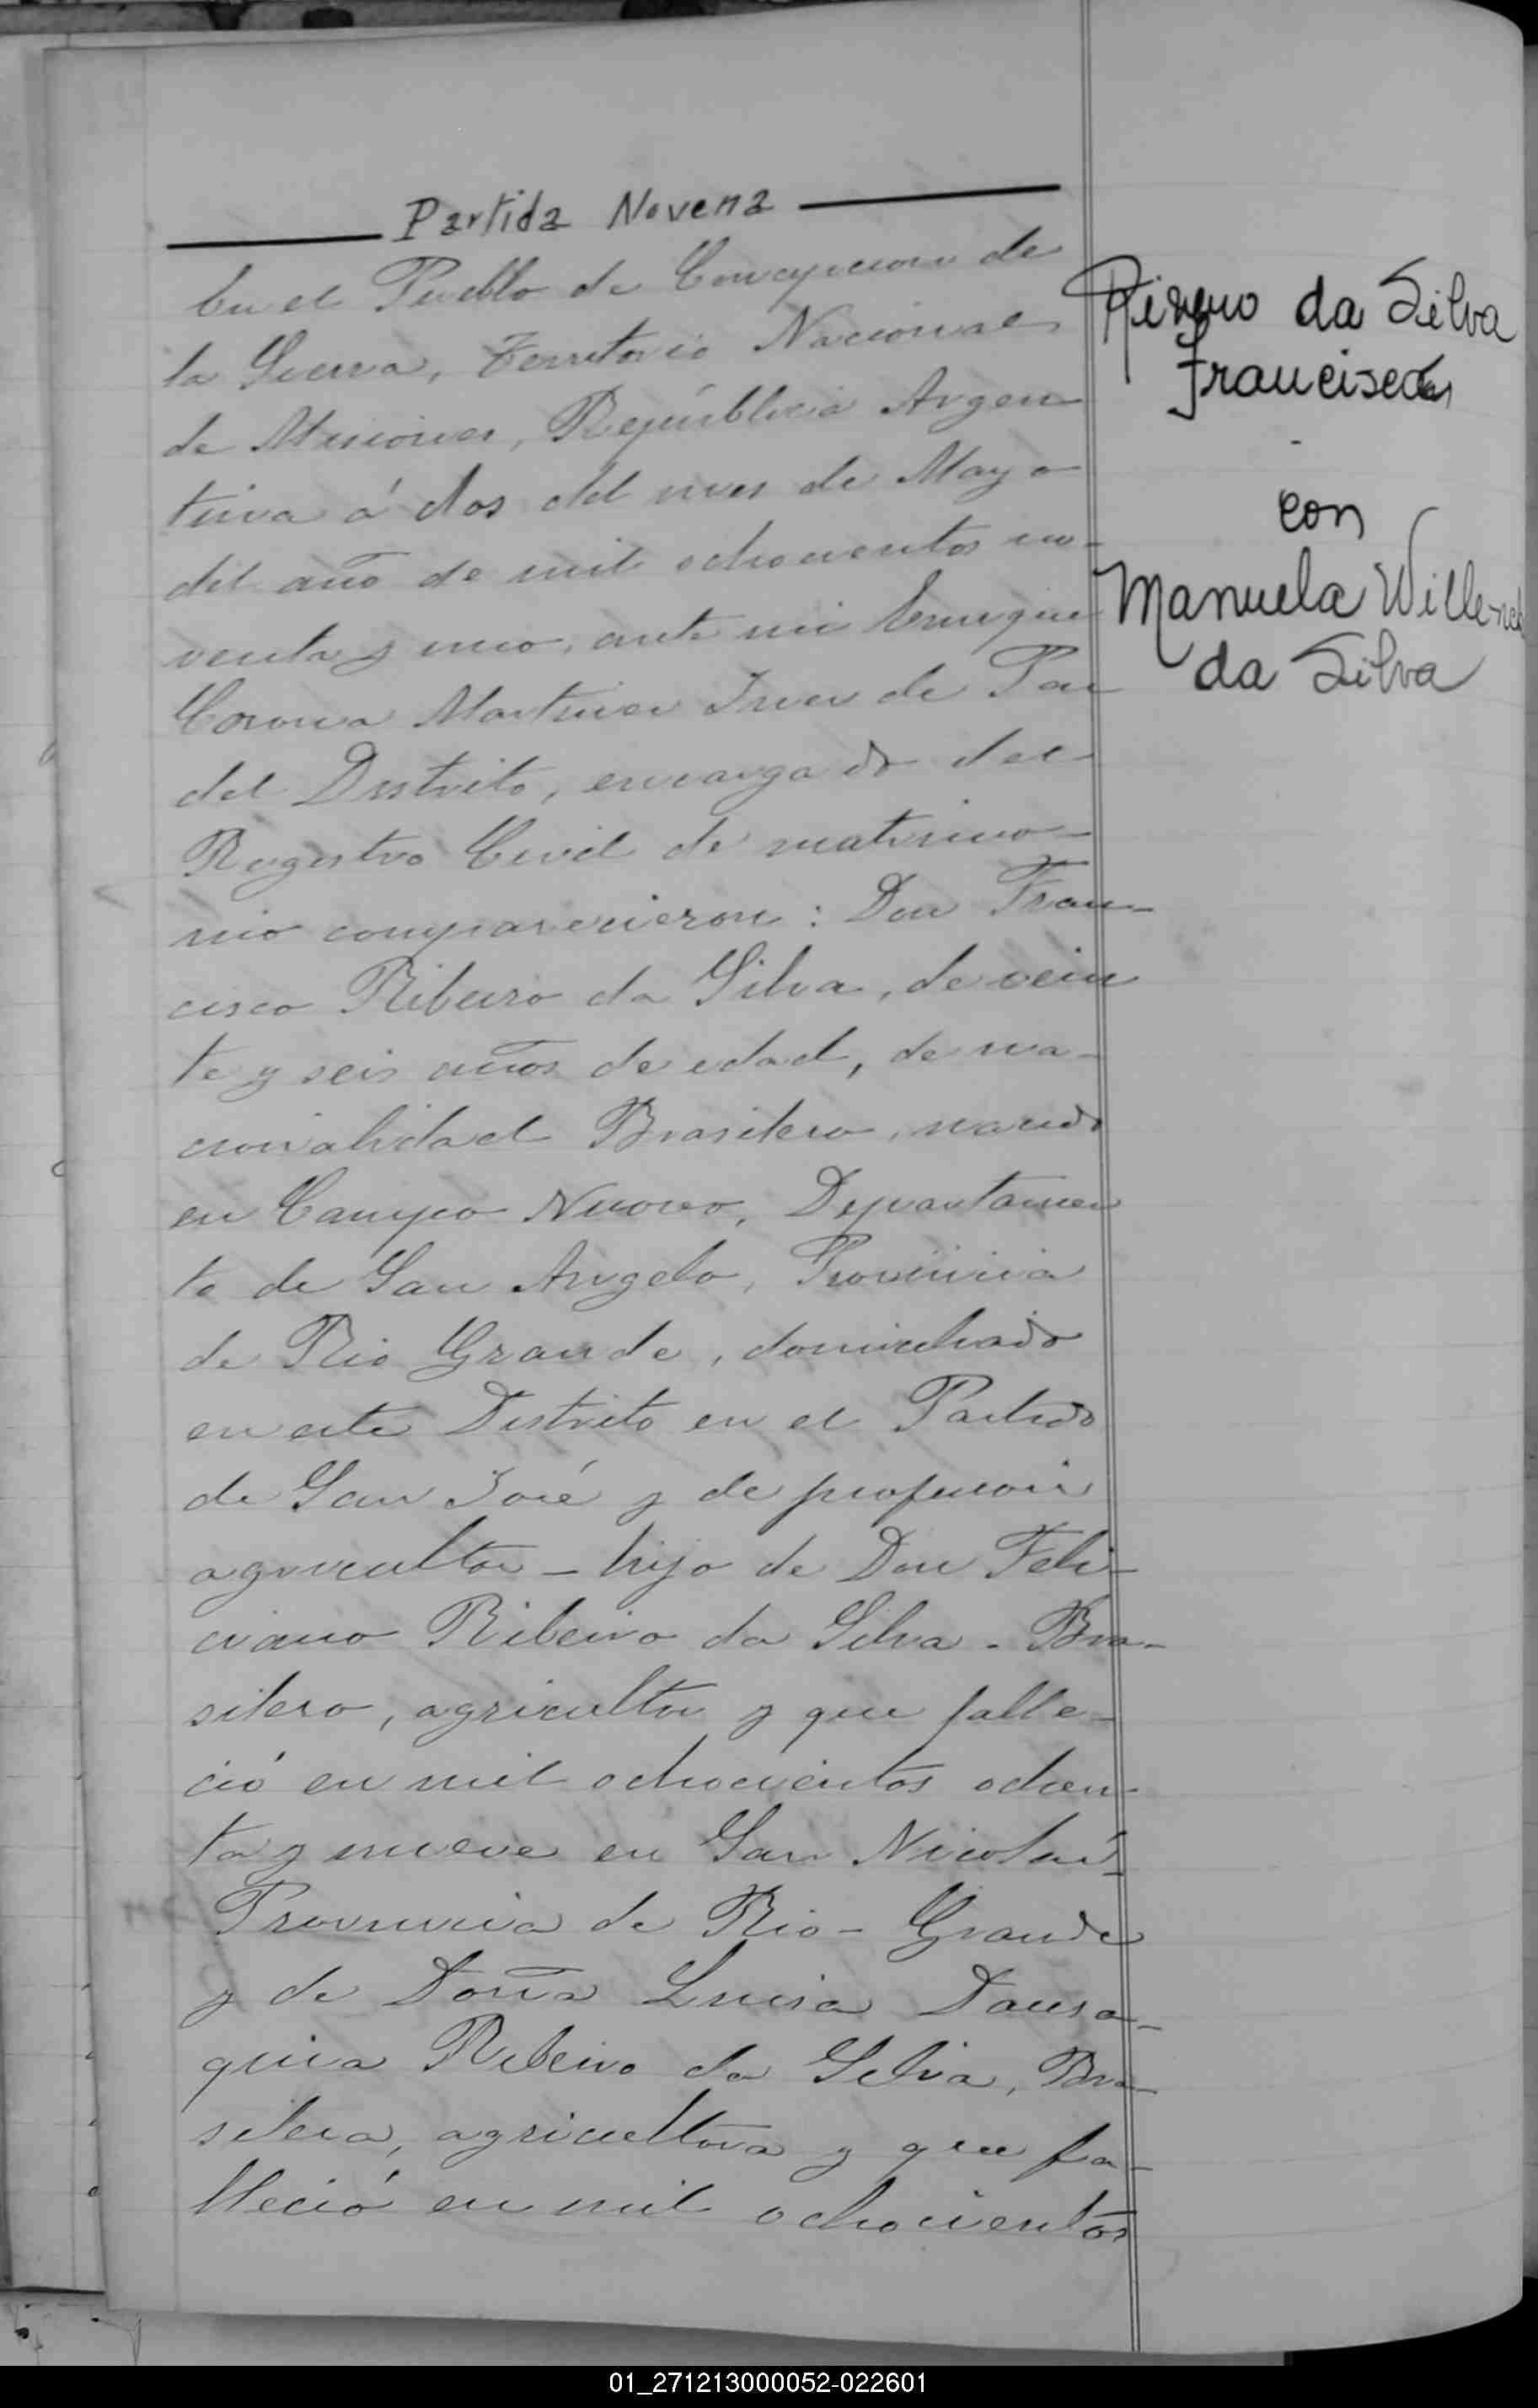 Partida Novena
En el Pueblo de Concepcion de
la Sierra, Territorio Nacional
de Misiones, República Argen
tina á dos del mes de Mayo
del año de mil ochocientos no-
venta y uno, ante mi Enrique
Corona Martinez Juez de Paz
del Distrito, encargado del
Registro Civil de matrimo-
nio comparecieron: Don Fran-
cisco Ribeiro da Silva, de vein
te y seis años de edad, de na-
cionalidad Brasilero, nacido
en Campo Nuovo, Departamen
to de San Angelo, Provincia
de Rio Grande, domiciliado
en este Distrito en el Partido
de San José y de profesion
agricultor - hijo de Don Feli-
ciano Ribeiro da Silva - Bra-
silero, agricultor y que falle-
ció en mil ochocientos ochen-
ta y nueve en San Nicolas-
Provincia de Rio-Grande
y de Doña Luisa
Ribeiro da Silva, Bra-
silera, agricultora y que fa-
lleció en mil ochocientos
da Silva
Francisco
con
Manuela
da Silva
01_271213000052-022601